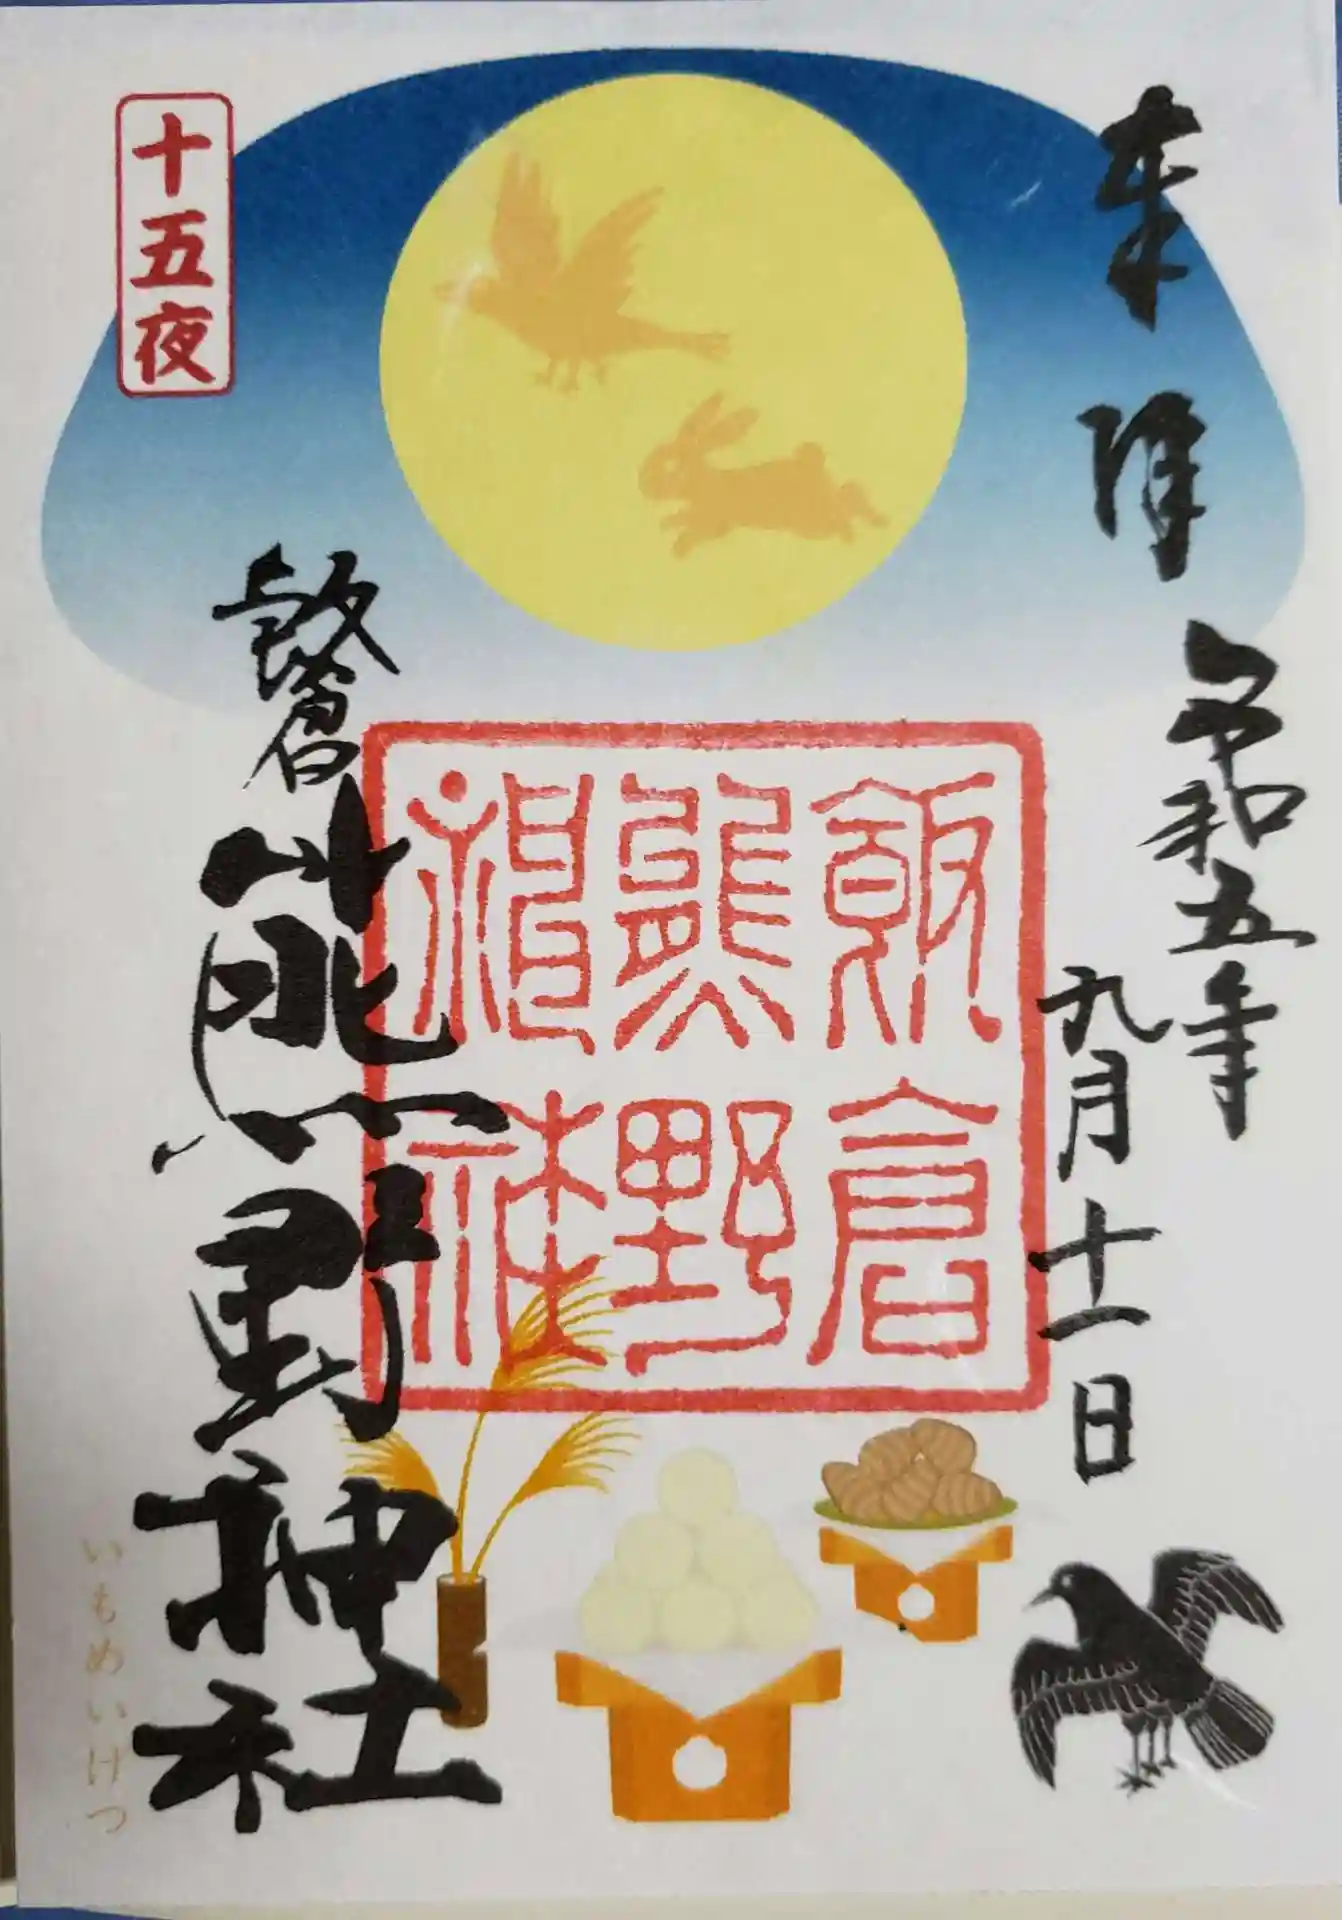 奉拝
令和五年
九月十一日
飯倉
熊野
神社
飯倉熊野神社
十五夜
いもめいげつ